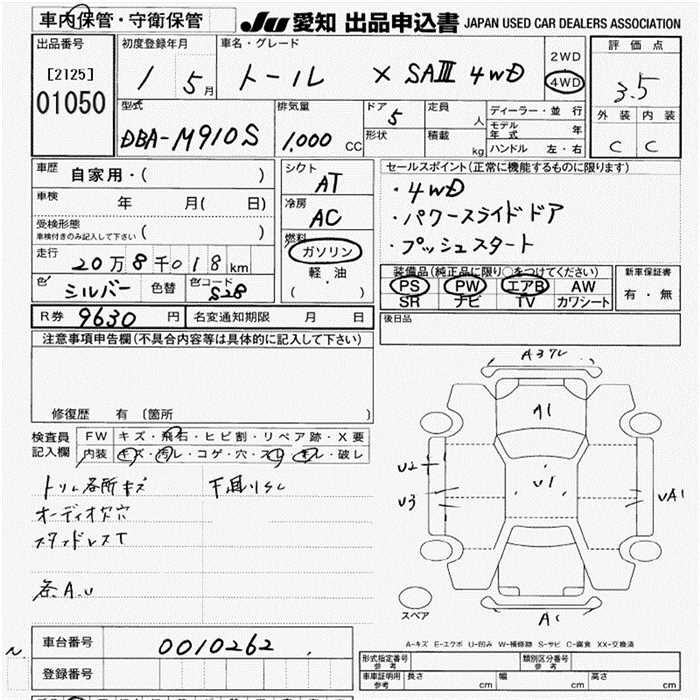 車内保管・守衛保管
JU 愛知 出品申込書 JAPAN USED CAR DEALERS ASSOCIATION
出品番号
[2125]
01050
初度登録年月
1 5月
車名・グレード
トール X SAⅢ 4WD
2WD
4WD
評価点
3.5
外装 内装
C C
型式
DBA-M910S
排気量
1,000 CC
ドア 5
形状
定員 人
積載 kg
ディーラー・並行
モデル年式 年
ハンドル 左・右
車歴
自家用・( )
車検 年 月( 日)
受検形態
車検付きのみ記入して下さい ( )
走行
20万8千018km
色 シルバー 色替 色コード S28
シフト
AT
冷房
AC
燃料
ガソリン
軽・油
( ・ )
セールスポイント(正常に機能するものに限ります)
・4WD
・パワースライドドア
・プッシュスタート
装備品(純正品に限り○をつけてください)
PS PW エアB AW
SR ナビ TV カワシート
新車保証書
有・無
R券 9630 円 名変通知期限 月 日
後日品
注意事項申告欄(不具合内容等は具体的に記入して下さい)
修復歴 有 〔箇所 〕
検査員記入欄
FW キズ・飛石・ヒビ割・リペア跡・X要
内装 キズ・汚レ・コゲ・穴・スレ・キレ・破レ
トリム各所キズ
オーディオ穴穴
スタッドレスT
各A.U
A1
U2
U3
U1
UA1
スペア
A-キズ E-エクボ U-凹み W-補修跡 S-サビ C-腐食 XX-交換済
車台番号 0010262
登録番号
形式指定番号 参考
類別区分番号 参考
車庫証明用 参考 長さ cm 幅 cm 高さ cm